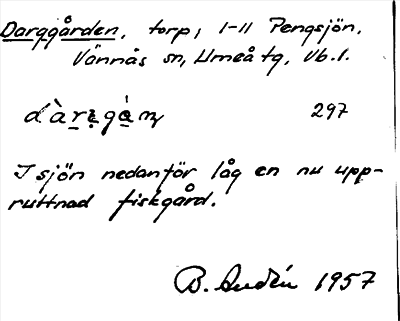 Darggården, torp, I-II Pengsjön,
Vännäs sn, Umeå tg, Vb. l.
297
I sjön nedanför låg en nu upp-
ruttnad fiskgård.
B. 1957